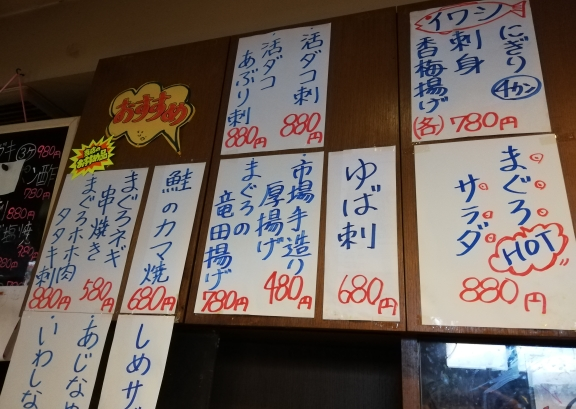 イワシ
にぎり
4カン
刺身
香梅揚げ
(各)780円
活ダコ刺
880円
活ダコ
あぶり刺
880円
おすすめ
まぐろ
HOT
サラダ
880円
ゆば刺
680円
市場手造り
厚揚げ
480円
まぐろの
竜田揚げ
780円
鮭のカマ焼
680円
まぐろネギ
串焼き
580円
まぐろホホ肉
タタキ刺
880円
しめサ
あじなめ
いわしな
980円
780円